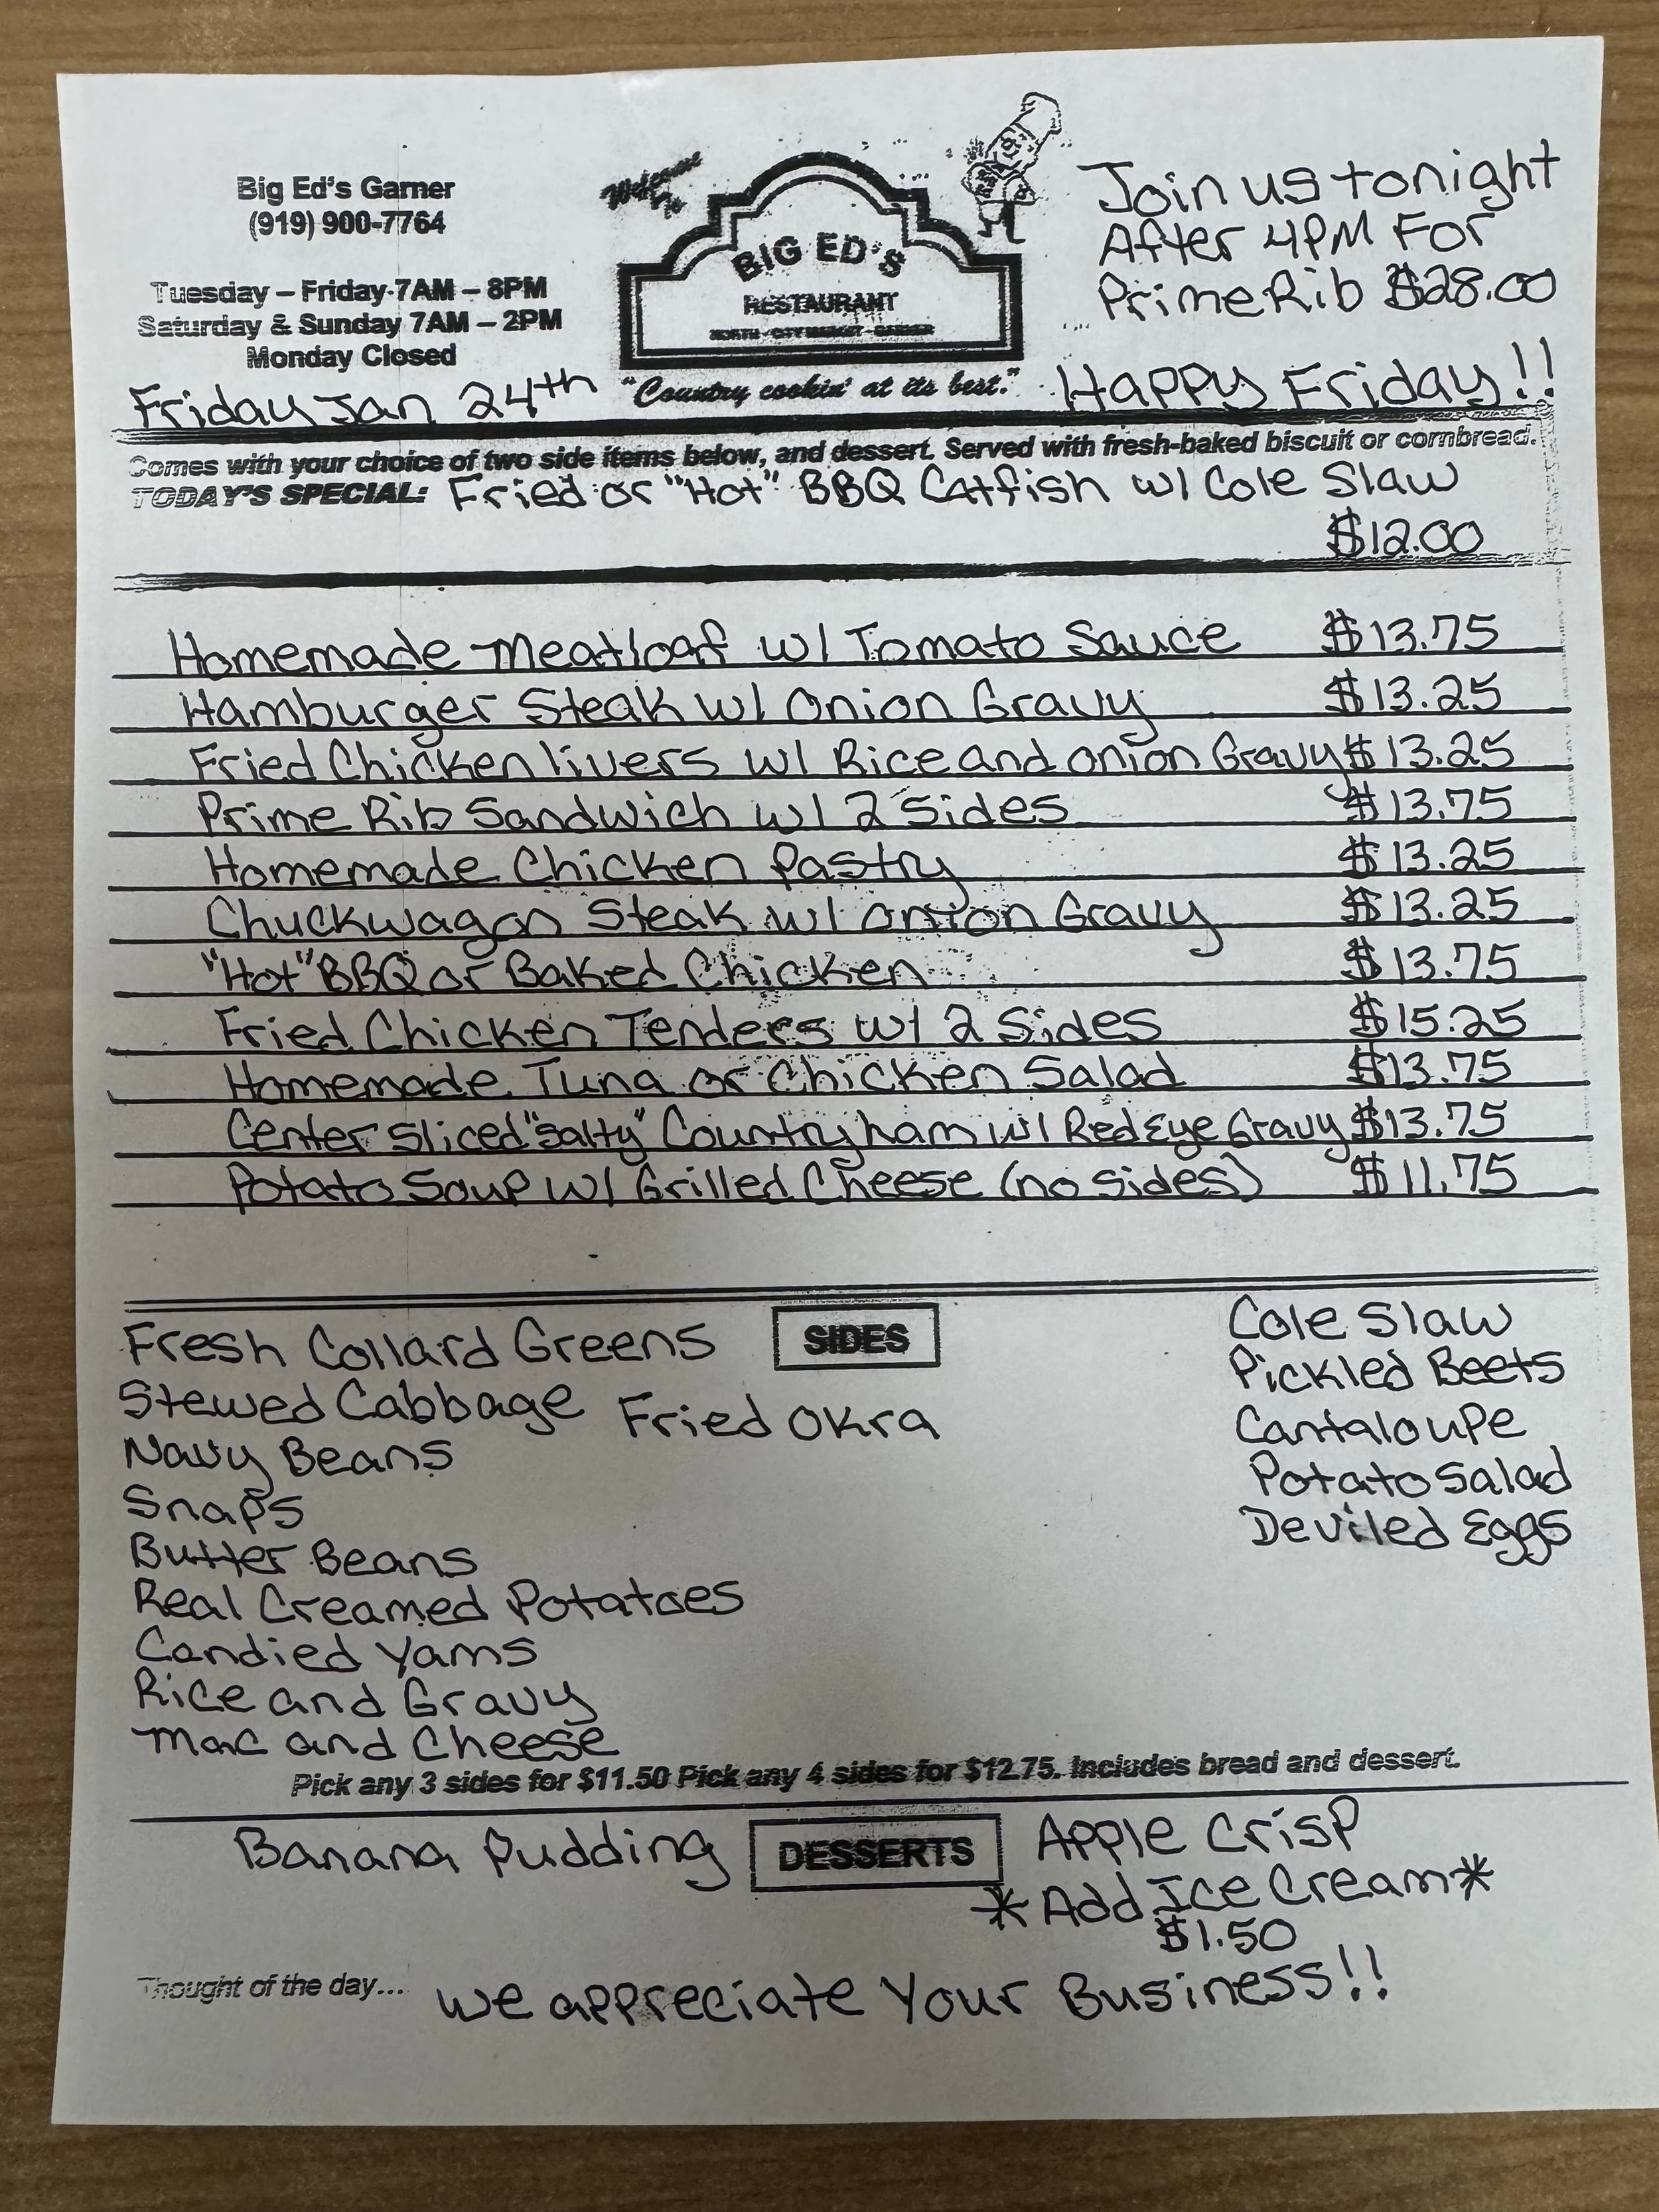 Big Ed's Garner
(919) 900-7764
Tuesday – Friday 7AM – 8PM
Saturday & Sunday 7AM – 2PM
Monday Closed
Friday Jan 24th
Welcome To
BIG ED'S
RESTAURANT
NORTH - CITY MARKET - GARNER
"Country cookin' at its best."
Join us tonight
After 4PM For
Prime Rib $28.00
Happy Friday!!
Comes with your choice of two side items below, and dessert. Served with fresh-baked biscuit or cornbread.
TODAY'S SPECIAL: Fried or "Hot" BBQ Catfish w/ Cole Slaw
$12.00
Homemade Meatloaf w/ Tomato Sauce $13.75
Hamburger Steak w/ Onion Gravy $13.25
Fried Chicken livers w/ Rice and onion Gravy $13.25
Prime Rib Sandwich w/ 2 Sides $13.75
Homemade Chicken Pastry $13.25
Chuckwagon Steak w/ onion Gravy $13.25
"Hot" BBQ or Baked Chicken $13.75
Fried Chicken Tenders w/ 2 Sides $15.25
Homemade Tuna or Chicken Salad $13.75
Center Sliced "Salty" Country ham w/ Red Eye Gravy $13.75
Potato Soup w/ Grilled Cheese (no sides) $11.75
SIDES
Fresh Collard Greens
Stewed Cabbage
Navy Beans
Snaps
Butter Beans
Real Creamed Potatoes
Candied Yams
Rice and Gravy
Mac and Cheese
Fried Okra
Cole Slaw
Pickled Beets
Cantaloupe
Potato Salad
Deviled Eggs
Pick any 3 sides for $11.50 Pick any 4 sides for $12.75. Includes bread and dessert.
Banana Pudding
DESSERTS
Apple Crisp
*Add Ice Cream*
$1.50
Thought of the day... We appreciate Your Business!!